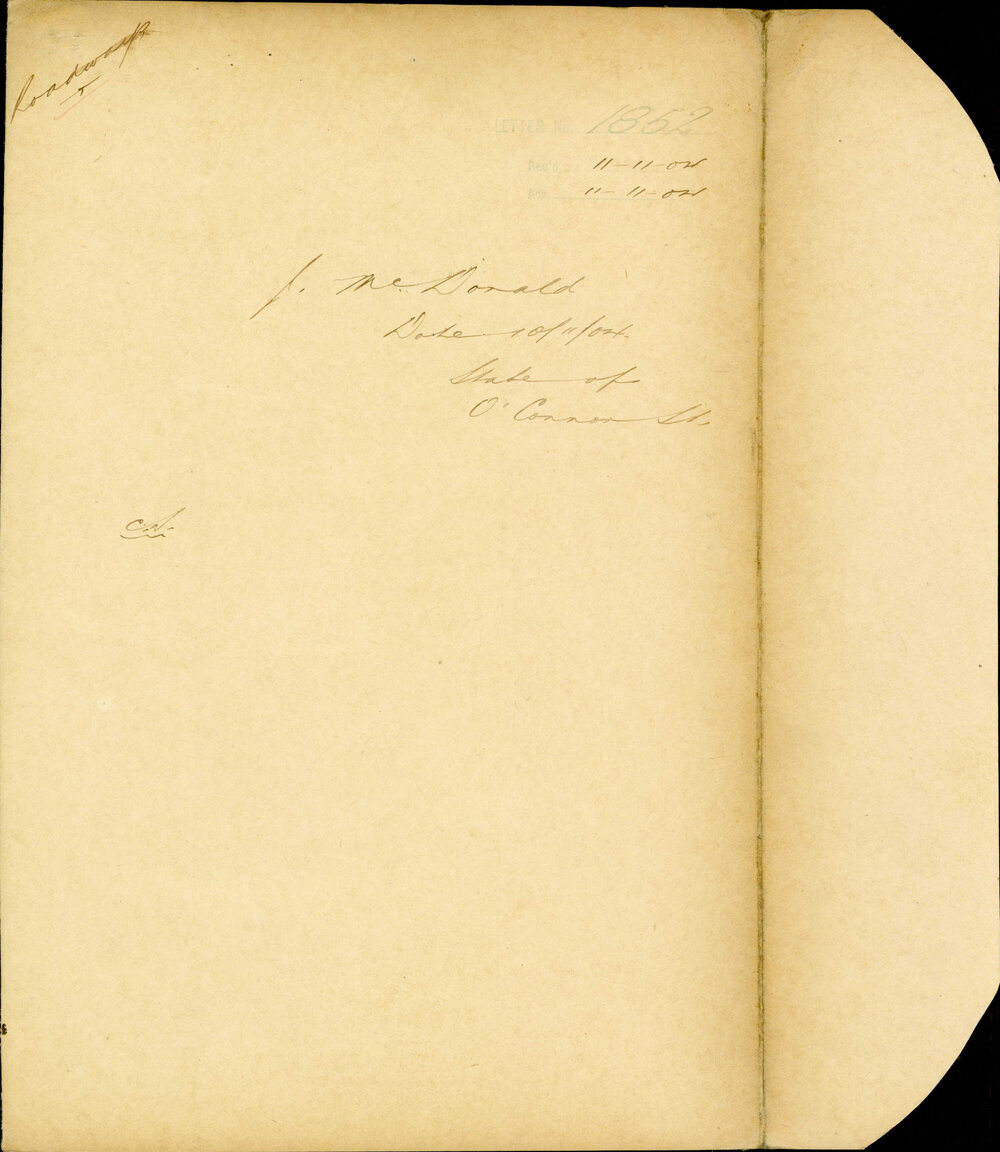 Roadways
5
LETTER No. 1852
Rec'd. 11-11-04
Ack. 11-11-04
J. McDonald
Date 10/11/04.
State of
O'Connor St.